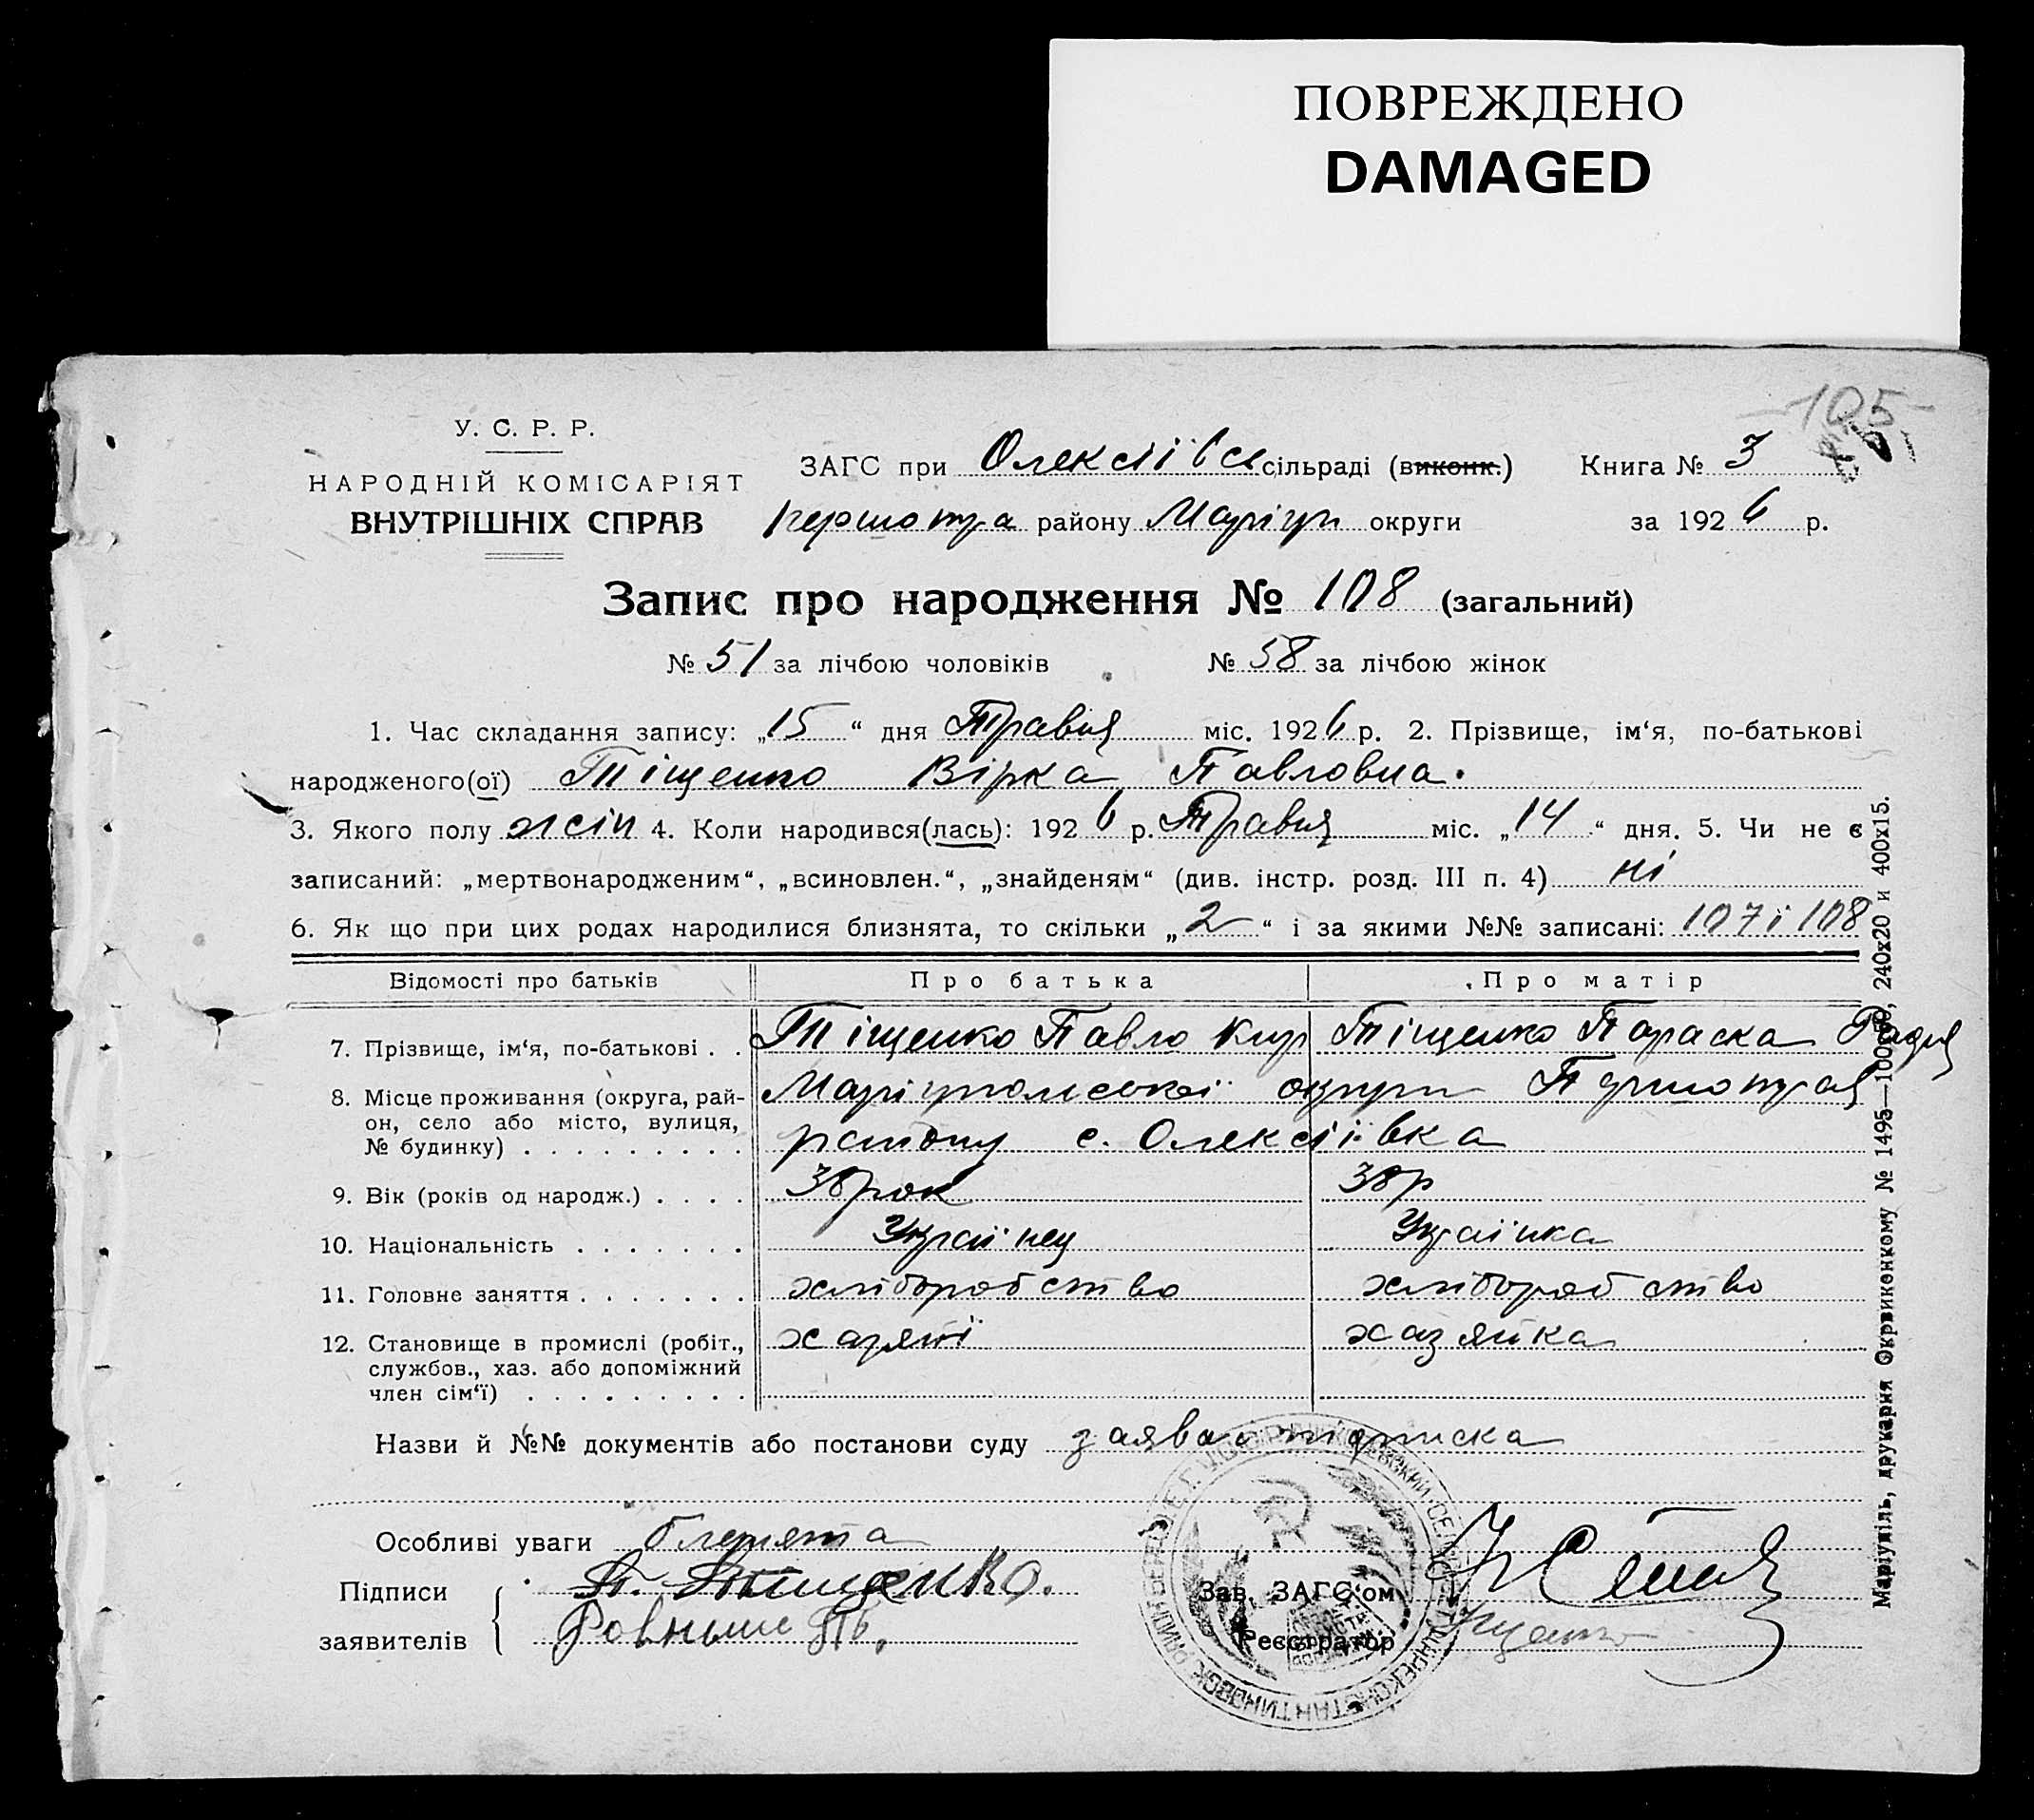 ПОВРЕЖДЕНО
DAMAGED
105
У. С. Р. Р.
НАРОДНІЙ КОМІСАРІЯТ
ВНУТРІШНІХ СПРАВ
ЗАГС при Олексіївс сільраді (виконк.) Книга № 3
першотра району Маріуп округи за 1926 р.
Запис про народження № 108 (загальний)
№ 51 за лічбою чоловіків № 58 за лічбою жінок
1. Час складання запису: „15“ дня Травня міс. 1926 р. 2. Прізвище, ім‘я, по-батькові
народженого(ої) Тіщенко Вірка Павловна.
3. Якого полу жін 4. Коли народився(лась): 1926 р. Травня міс. „14“ дня. 5. Чи не є
записаний: „мертвонародженим“, „всиновлен.“, „знайденям“ (див. інстр. розд. III п. 4) ні
6. Як що при цих родах народилися близнята, то скільки „2“ і за якими №№ записані: 107 і 108
Відомості про батьків Про батька Про матір
7. Прізвище, ім‘я, по-батькові . . Тіщенко Павло Кир Тіщенко Параска
8. Місце проживання (округа, рай-
он, село або місто, вулиця,
№ будинку) . . . . . . . . .
Маріупольської округи Першотра
району с. Олексіївка
9. Вік (років од народж.) . . . . 38 рок 38 р
10. Національність . . . . . . . Українец Українка
11. Головне заняття . . . . . . . хліборобство хліборобство
12. Становище в промислі (робіт.,
службов., хаз. або допоміжний
член сім‘ї) . . . . . . . . .
хазяїн хазяйка
Назви й №№ документів або постанови суду заява і підписка
Особливі уваги близнята
Підписи
заявителів
П. Тищенко.
Зав. ЗАГС‘ом
Реєстратор
Маріупіль, друкарня Окрвиконкому № 1495—100х50, 240х20 и 400х15.